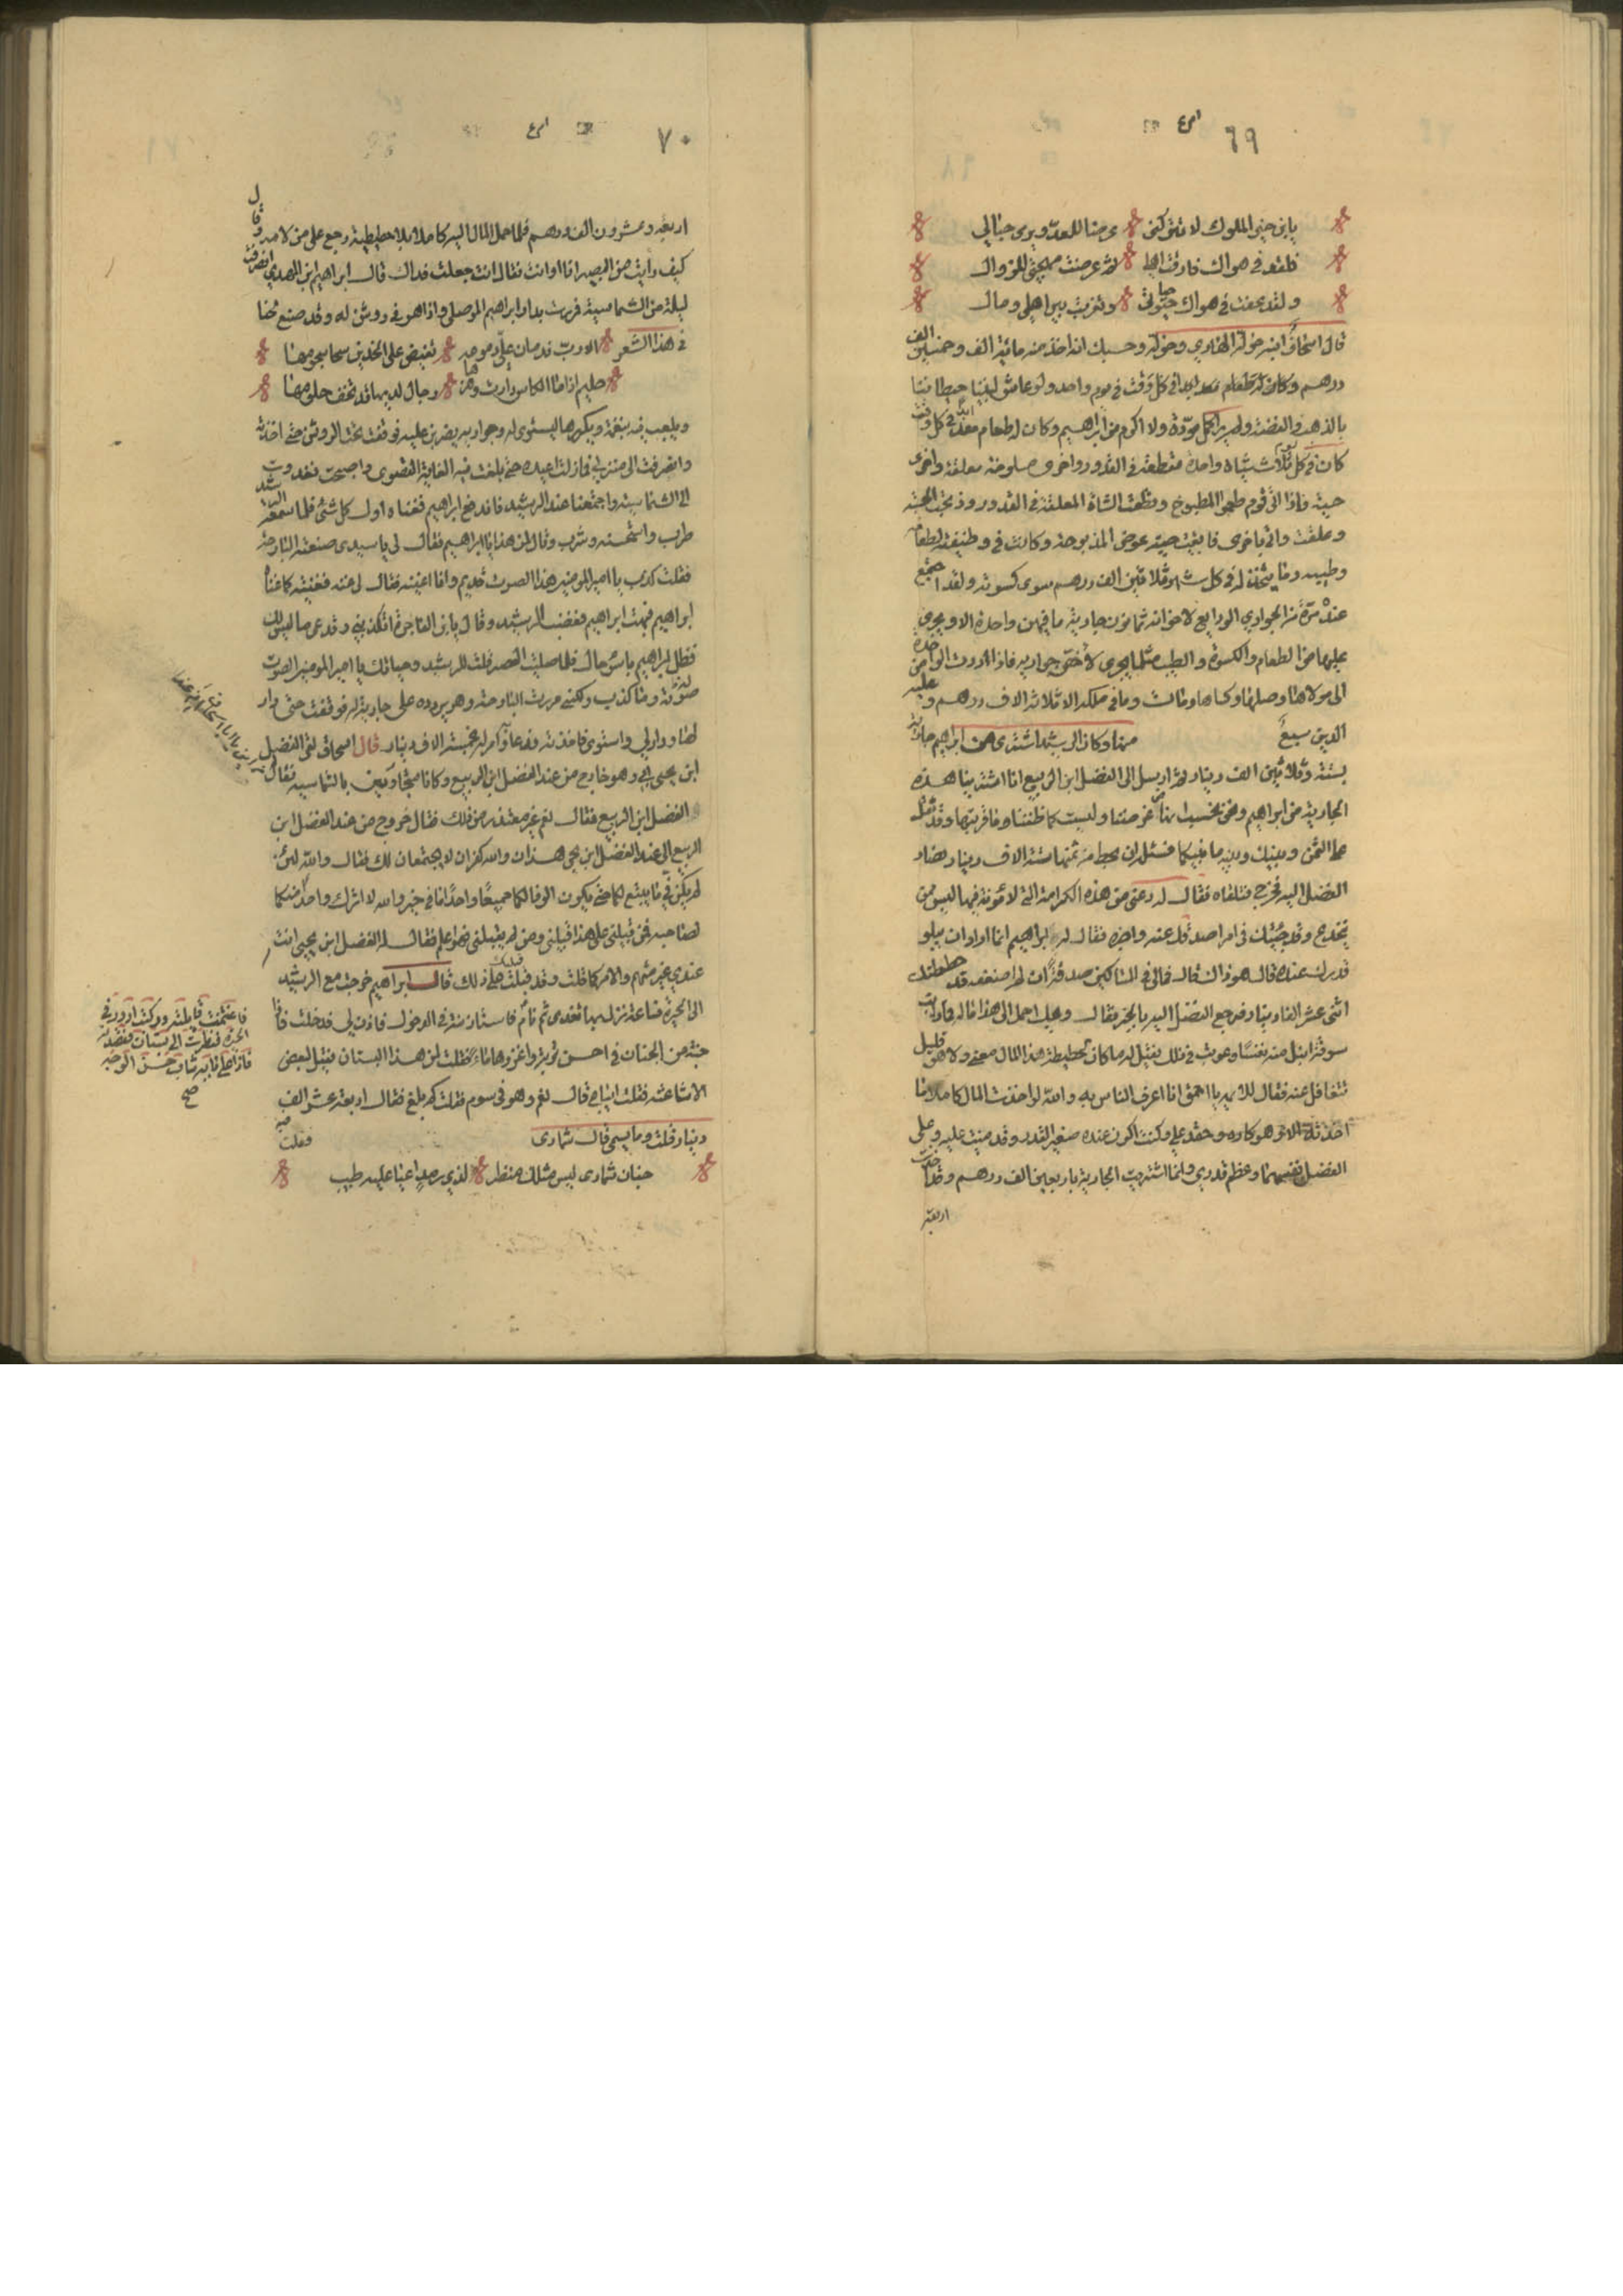 ٦٩
يا بن خير الملوك لا تتركني غرضا للعدو يرمي حيالي
فلقد في هواك فارقت اهلي ثم عرضت مهجتي للزوال
ولقد عفت في هواك حياتي وتغربت بين اهلي ومالي
قال اسحاق ابنه خوله الهادي وخوله وحسبك انه اخذ منه مائة الف وخمسين الف
درهم وكان له طعام معد ابدا في كل وقت في يوم واحد ولو عاش لبنينا حيطاننا
بالذهب والفضة ولم ير اكمل مروة ولا اكرم من ابراهيم وكان له طعام معد ابدا في كل وقت
كان في كل يوم ثلاث شياه واحدة مقطعة في القدور واخرى مسلوخة معلقة واخرى
حية فاذا اتى قوم طعموا المطبوخ وقطعت الشاة المعلقة في القدور وذبحت الحية
وعلقت واتي باخرى فابقيت حية عوض المذبوحة وكانت في وظيفته لطعامه
وطيبه وما يتخذ له في كل شهر ثلاثين الف درهم سوى كسوته ولقد اجتمع
عنده مرة من الجواري الودايع لاخوانه ثمانون جارية ما فيهن واحدة الا ويجري
عليها من الطعام والكسوة والطيب مثلما يجري لاخص جواريه فاذا ردت الواحدة منهن
الى مولاها وصلها وكساها ومات وما في ملكه الا ثلاثة الاف درهم وعليه
الدين سبع منها وكان الرشيد اشترى من ابراهيم جارية
بستة وثلاثين الف دينار ثم ارسل الى الفضل ابن الربيع انا اشترينا هذه
الجارية من ابراهيم ونحن نحسب انها من غرضنا وليست كما ظننا وما قربتها وقد ثقل
علي الثمن وبينك وبينه ما بينكما فسله ان يحط من ثمنها ستة الاف دينار فصار
الفضل اليه فخرج فتلقاه فقال له دعني من هذه الكرامة التي لا مؤنة فيها لست ممن
يخدع وقد جئتك في امر اصدقك عنه واخبره فقال له ابراهيم انما اراد ان يبلو
قدرك عندي قال هو ذاك قال فمالي في المساكين صدقة ان لم اضعفه قد حططتك
اثنى عشر الف دينار فرجع الفضل اليه بالخبر فقال ويلك احمل الى هذا ماله فما رايت
سوقة انبل منه نفسا وعوتب في ذلك فقيل له ما كان لحطيطة هذا المال معنى ولا هو قليل
تتغافل عنه فقال للائمه يا احمق انا اعرف الناس به والله لو اخذت المال كاملا ما
اخذته الا وهو كاره وحقد علي وكنت اكون عنده صغير القدر وقد مننت عليه وعلى
الفضل نفسهما وعظم قدري وانما اشتريت الجارية باربعين الف درهم وقد اخذت
اربعة
٧٠
اربعة وعشرون الف درهم فلما حمل المال اليه كاملا بلا حطيطة رجع على من لامه وقال
كيف رايت من البصير انا او انت فقال انت جعلت فداك قال ابراهيم ابن المهدي انصرفت
ليلة من الشماسية فمررت بدار ابراهيم الموصلي واذا هو في روشن له وقد صنع لحنا
في هذا الشعر الا رب ندمان علي دموعه تفيض على الخدين سحا سجومها
حليم اذا ما الكاس دارت وهرها رجال لديها قد تخف حلومها
ويلعب فيه بنغمة ويكررها ليستوي له وجواريه يضربن عليه فوقفت تحت الروشن حتى اخذته
وانصرفت الى منزلي فمازلت اعيده حتى بلغت فيه الغاية القصوى واصبحت فغدوت
الى الشماسية واجتمعنا عند الرشيد فاندفع ابراهيم فغناه اول كل شئ فلما سمعه الرشيد
طرب واستحسنه وشرب وقال لمن هذا يا ابراهيم فقال لي يا سيدي صنعته البارحة
فقلت كذب يا امير المومنين هذا الصوت قديم وانا اغنيه فقال لي غنه فغنيته كما غناه
ابراهيم فبهت ابراهيم فغضب الرشيد وقال يا بن الفاجرة اتكذبني وتدعي ما ليس لك
فظل ابراهيم باسوء حال فلما صليت العصر قلت للرشيد وحياتك يا امير المومنين الصوت
صوته وما كذب ولكنني مررت البارحة وهو يردده على جارية له فوقفت حتى دار
لها ودار لي واستوى فاخذته فدعا وامر له بخمسة الاف دينار قال اسحاق لقي الفضل
ابن يحيى ابي وهو خارج من عند الفضل ابن الربيع وكانا متجاورين بالشماسية فقال
الفضل ابن الربيع فقال نعم غير معتذر من ذلك فقال خروج من عند الفضل ابن
الربيع الى عند الفضل ابن يحيى هذان والله كثران لا يجتمعان لك فقال والله لئن
لم يكن في ما يتسع لكما حتى يكون الوفا لكما جميعا واحدا ما في خير والله لا اترك واحدا منكما
لصاحبه فمن قبلني على هذا قبلني ومن لم يقبلني فهو اعلم فقال له الفضل ابن يحيى انت
عندي غير متهم والامر كما قلت وقد قبلتك على ذلك قال ابراهيم خرجت مع الرشيد
الى الحيرة فساعة نزل بها تغدى ثم نام فاستاذنته في الدخول فاذن لي فدخلت فاذا
جنة من الجنان في احسن تربة واغزرها ماء فقلت لمن هذا البستان فقيل لبعض
الاشاعثه فقلت ايباع قال نعم وهو في سوم فقلت كم بلغ فقال اربعة عشر الف
دينار قلت وما يسمى قال شمارى فقلت فيه
جنان شمارى ليس مثلك منظر لذي رمد اعيا عليه طبيب
فاغتنمت قايلته وركبت ادور في
الحيرة فنظرت الى بستان فقصدته
فاذا على بابه شاب حسن الوجه
صح